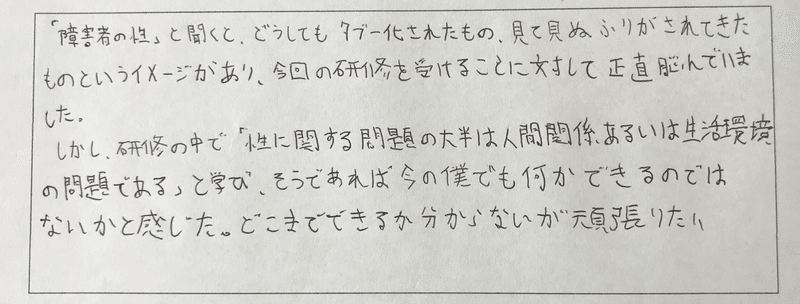 「障害者の性」と聞くと、どうしても タブー化されたもの、見て見ぬふりがされてきた
ものというイメージがあり、今回の研修を受けることに対して 正直 悩んでいま
した。
しかし、研修の中で「性に関する問題の大半は人間関係、あるいは生活環境
の問題である」と学び、そうであれば 今の僕でも何かできるのでは
ないかと感じた。どこまでできるか分からないが頑張りたい